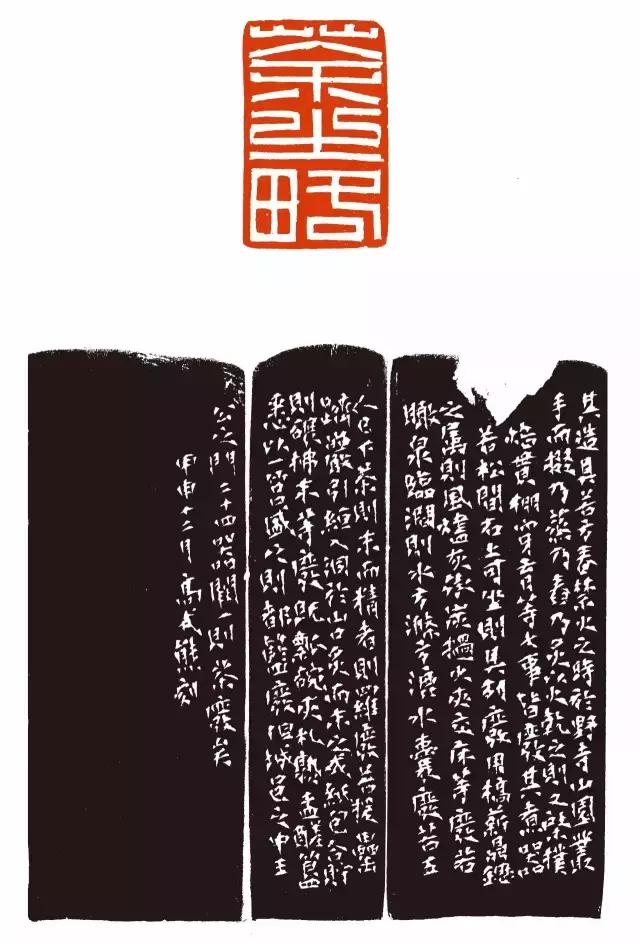 茶之略
其造具若方春禁火之時於野寺山園叢
手而掇乃蒸乃舂乃炙以火乾之則又棨撲
焙貫棚穿育等七事皆廢其煮器
若松間石上可坐則具列廢用槁薪鼎䥶
之屬則風爐灰承炭撾火夾交床等廢若
瞰泉臨澗則水方滌方漉水囊廢若五
人已下茶則末而精者則羅廢若援藟
躋巖引絙入洞於山口炙而末之或紙包合貯
則碾拂末等廢既瓢碗夾札熟盂醝簋
悉以一筥盛之則都籃廢但城邑之中王
公之門二十四器闕一則茶廢矣
甲申十二月高式熊刻